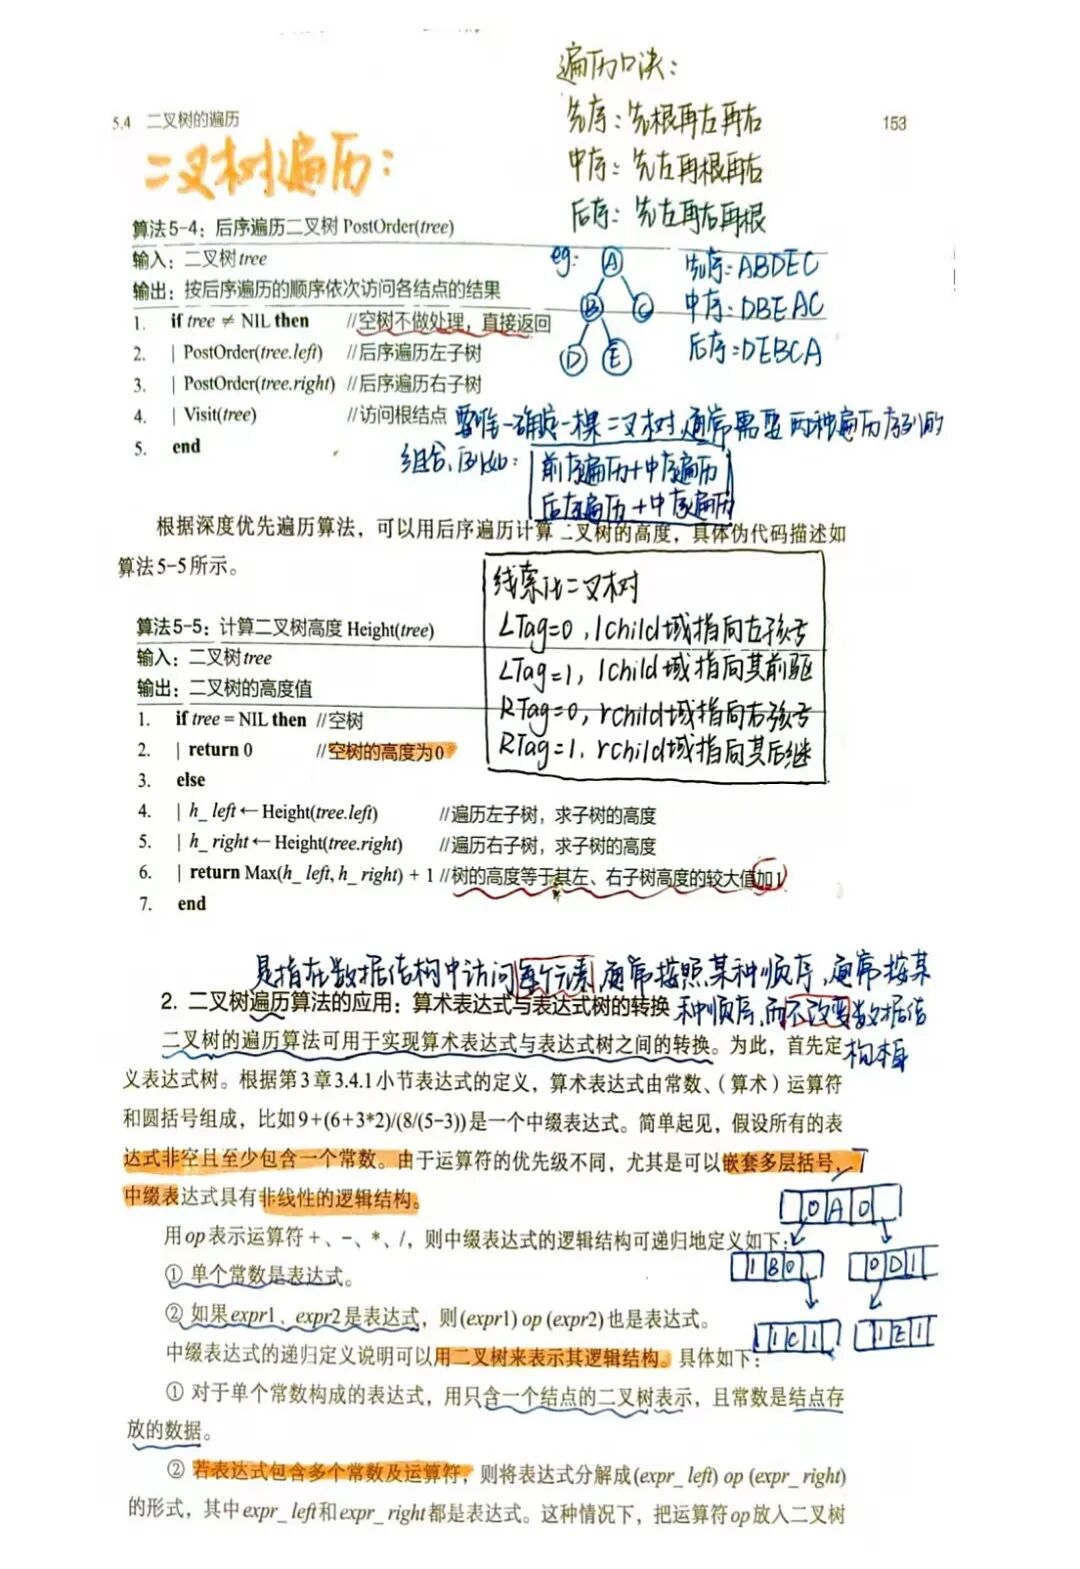 遍历口决：
5.4 二叉树的遍历
先序：先根再左再右
153
二叉树遍历：
中序：先左再根再右
后序：先左再右再根
算法5-4：后序遍历二叉树 PostOrder(tree)
输入：二叉树tree
输出：按后序遍历的顺序依次访问各结点的结果
1. if tree ≠ NIL then //空树不做处理，直接返回
2. | PostOrder(tree.left) //后序遍历左子树
3. | PostOrder(tree.right) //后序遍历右子树
4. | Visit(tree) //访问根结点
5. end
eg: A
B C
D E
先序：ABDEC
中序：DBEAC
后序：DEBCA
要唯一确定一棵二叉树，通常需要两种遍历序列的
组合、例如：
前序遍历+中序遍历
后序遍历+中序遍历
根据深度优先遍历算法，可以用后序遍历计算二叉树的高度，具体伪代码描述如
算法5-5所示。
线索化二叉树
LTag=0，lchild域指向左孩子
LTag=1，lchild域指向其前驱
RTag=0，rchild域指向右孩子
RTag=1，rchild域指向其后继
算法5-5：计算二叉树高度 Height(tree)
输入：二叉树tree
输出：二叉树的高度值
1. if tree = NIL then //空树
2. | return 0 //空树的高度为0
3. else
4. | h_left ← Height(tree.left) //遍历左子树，求子树的高度
5. | h_right ← Height(tree.right) //遍历右子树，求子树的高度
6. | return Max(h_left, h_right) + 1 //树的高度等于其左、右子树高度的较大值加1
7. end
是指在数据结构中访问每个元素，通常按照某种顺序，通常按某
种顺序，而不改变数据结
构本身
2. 二叉树遍历算法的应用：算术表达式与表达式树的转换
二叉树的遍历算法可用于实现算术表达式与表达式树之间的转换。为此，首先定
义表达式树。根据第3章3.4.1小节表达式的定义，算术表达式由常数、（算术）运算符
和圆括号组成，比如9+(6+3*2)/(8/(5-3))是一个中缀表达式。简单起见，假设所有的表
达式非空且至少包含一个常数。由于运算符的优先级不同，尤其是可以嵌套多层括号，
中缀表达式具有非线性的逻辑结构。
T
0 A 0
1 B 0 0 D 1
1 C 1 1 E 1
用op表示运算符+、-、*、/，则中缀表达式的逻辑结构可递归地定义如下：
① 单个常数是表达式。
② 如果expr1、expr2是表达式，则(expr1) op (expr2)也是表达式。
中缀表达式的递归定义说明可以用二叉树来表示其逻辑结构。具体如下：
① 对于单个常数构成的表达式，用只含一个结点的二叉树表示，且常数是结点存
放的数据。
② 若表达式包含多个常数及运算符，则将表达式分解成(expr_left) op (expr_right)
的形式，其中expr_left和expr_right都是表达式。这种情况下，把运算符op放入二叉树